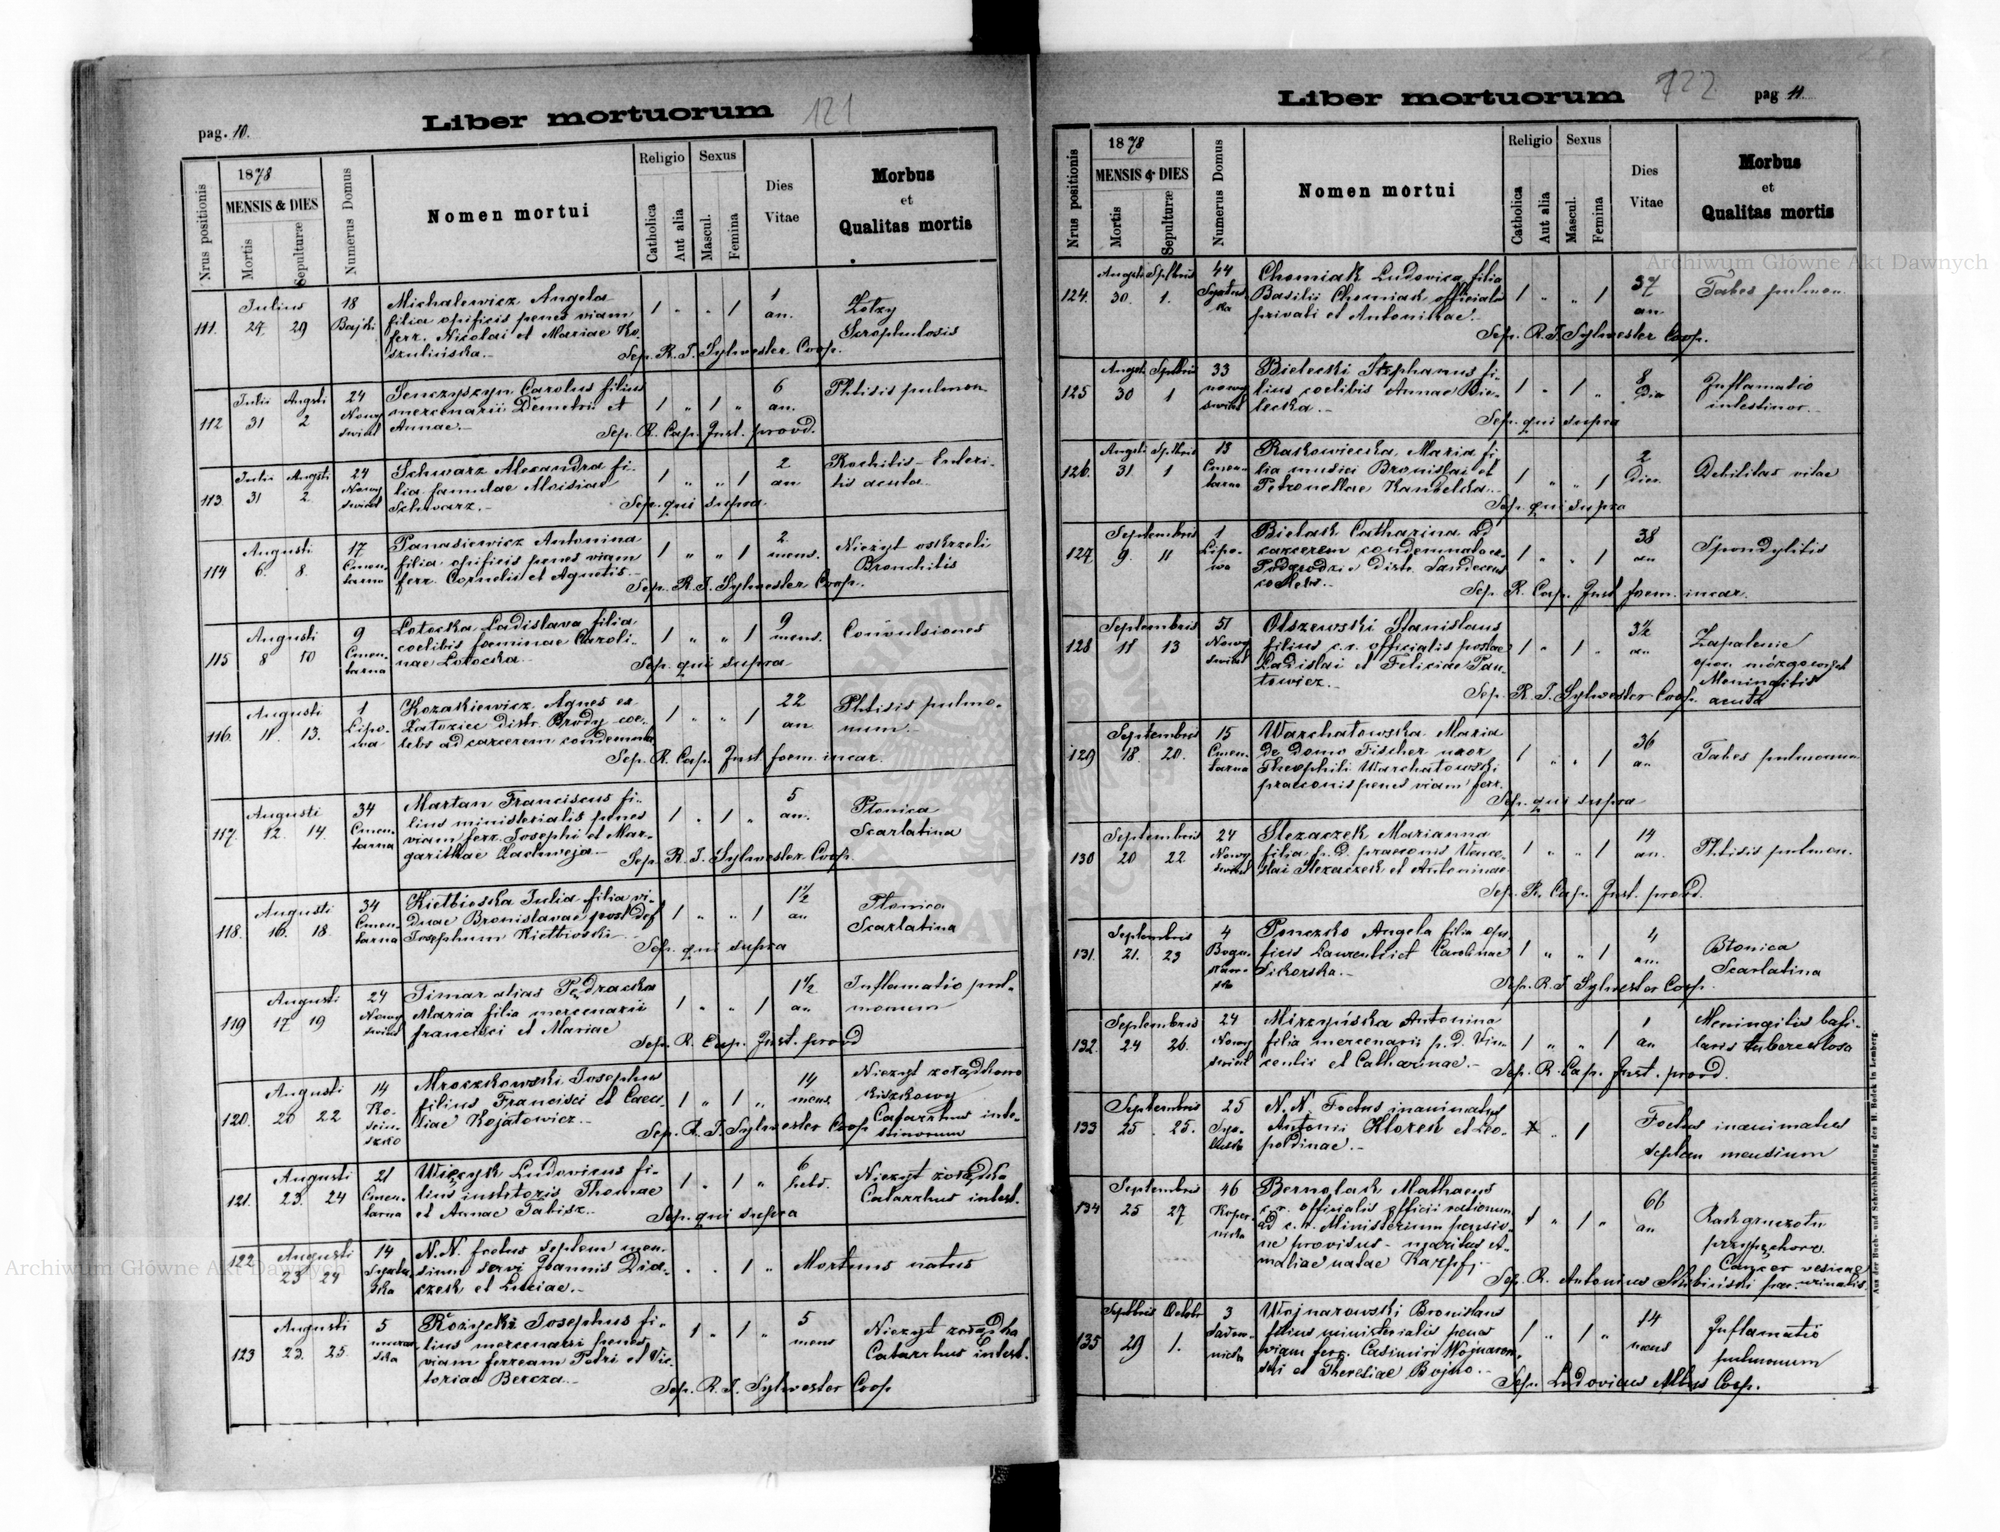 Liber mortuorum 121
pag. 10.
Nrus positionis
1878
MENSIS & DIES
Mortis
Sepulturæ
Numerus Domus
Nomen mortui
Religio
Catholica
Aut alia
Sexus
Mascul.
Femina
Dies
Vitae
Morbus
et
Qualitas mortis
111. Julius 27. 29 18 Bajki
Michalewicz Angela
filia opificis penes viam
ferr. Nicolai et Mariae Ko-
szulińska.-
1 " " 1 1 an.
Zołzy
Scrophulosis
Sep. R. J. Sylwester Coop.
112 Julii 31 Augsti 2 24 Nowy świat
Senczyszyn Carolus filius
mercenarii Demetrii et
Annae.-
1 " 1 " 6 an.
Phtisis pulmon.
Sep. R. Cap. Inst. provd.
113. Julii 31 Augsti 2 24 Nowy świat
Schwarz Alexandra fi-
lia famulae Aloisiae
Schwarz.-
1 " " 1 2 an
Rachitis - Enteri-
tis acuta.
Sep. qui supra
114 Augusti 6. 8. 17 Cmen-tarna
Panasiewicz Antonina
filia opificis penes viam
ferr. Cornelii et Agnetis.-
1 " " 1 2 mens.
Nieżyt oskrzeli
Bronchitis
Sep. R. J. Sylwester Coop.
115 Augusti 8 10 9 Cmen-tarna
Lotocka Ladislava filia
coelibis foeminae Caroli-
nae Lotocka.
1 " " 1 9 mens.
Convulsiones
Sep. qui supra
116. Augusti 11. 13. 1 Lipo-wa
Kozakiewicz Agnes ex
Zatoziec distr. Brody coe-
lebs ad carcerem condemnata
1 " " 1 22 an
Phtisis pulmo-
num.
Sep. R. Cap. Inst. foem. incar.
117. Augusti 12. 14. 34 Cmen-tarna
Martan Franciscus fi-
lius ministerialis penes
viam ferr. Josephi et Mar-
garithae Zachweja.-
1 " 1 " 5 an.
Płonica
Scarlatina
Sep. R. J. Sylwester Coop.
118. Augusti 16. 18. 34 Cmen-tarna
Kiełbioska Julia filia vi-
duae Bronislavae post def
Josephum
1 " " 1 1½ an
Płonica
Scarlatina
Sep. qui supra
119 Augusti 17 19 24 Nowy świat
Timar alias Pędracka
Maria filia mercenarii
francisci et Mariae
1 " " 1 1½ an
Inflamatio pul-
monum
Sep. R. Cap. Inst. provd
120. Augusti 20 22 14 Ko-sciu-szko
Mroczkowski Josephus
filius Francisci et Caeci-
liae Kojatowicz.-
1 " 1 " 14 mens
Nieżyt żołądkowo
kiszkowy
Catarrhus inte-
stinorum
Sep. R. J. Sylwester Coop
121. Augusti 23. 24 21 Cmen-tarna
Więcyk Ludovicus fi-
lius institoris Thomae
et Annae Tabisz.-
1 " 1 " 6 hebd.
Nieżyt żołądka
Catarrhus intest.
Sep. qui supra
122 Augusti 23 24 14
N.N. foetus septem men-
sium servi Joannis Dia-
czek et Luciae.-
" " 1 "
Mortuus natus
123 Augusti 23. 25. 5
Rożycki Josephus fi-
lius mercenarii penes
viam ferream Petri et Vic-
toriae Bercza.-
1 " 1 " 5 mens
Nieżyt żołądka
Catarrhus intest.
Sep. R. J. Sylwester Coop
Liber mortuorum 122 pag 11.
Nrus positionis
1878
MENSIS & DIES
Mortis
Sepulturæ
Numerus Domus
Nomen mortui
Religio
Catholica
Aut alia
Sexus
Mascul.
Femina
Dies
Vitae
Morbus
et
Qualitas mortis
124. Augsti 30. Sptbris 1. 44
Chomiak Ludovica filia
Basilii Chomiak officialis
privati et Antoninae.
1 " " 1 37 an.
Tabes pulmon.
Sep. R. J. Sylwester Coop.
125 Augsti 30 Sptbris 1 33 nowy świat
Bielecki Stephanus fi-
lius coelibis Annae Bie-
lecka.-
1 " 1 " 8 Die
Inflamatio
intestinor.
Sep. qui supra
126. Augsti 31 Sptbris 1 13 Cmen-tarna
Raskowiecka Maria fi-
lia musici Bronislai et
Petronellae Kandelka.
1 " " 1 2 Dies.
Debilitas vitae
Sep. qui supra
127. Septembris 9. 11 1 Lipo-wa
Bielak Catharina ad
carcerem condemnata ex
Podgrodzie distr. Sandecens
coelebs.-
1 " " 1 38 an
Spondylitis
Sep. R. Cap. Inst. foem. incar.
128 Septembris 11 13 51 Nowy świat
Olszewski Stanislaus
filius c.r. officialis postae
Ladislai et Feliciae Pan-
towicz.-
1 " 1 " 3½ an
Zapalenie
opon mózgowych
Meningitis
acuta
Sep. R. J. Sylwester Coop.
129 Septembris 18. 20. 15 Cmen-tarna
Warchatowska Maria
De Domo Fischer uxor
Theophili Warchatowski
praeconis penes viam ferr.
1 " " 1 36 an
Tabes pulmonum
Sep. qui supra
130 Septembris 20 22. 24 Nowy świat
Slezaczek Marianna
filia p. D. praeconis Vence-
slai Slezaczek et Antoninae
1 " " 1 14 an.
Phtisis pulmon.
Sep. R. Cap. Inst. provd.
131. Septembris 21. 23 4
Ponczko Angela filia opi-
ficis Laurentii et Carolinae
Sikorska.-
1 " " 1 4 an.
Płonica
Scarlatina
Sep. R. J. Sylwester Coop.
132. Septembris 24 26. 24 Nowy świat
Mirzyńska Antonina
filia mercenarii p. d. Vin-
centii et Catharinae.-
1 " " 1 1 an
Meningitis basi-
laris tuberculosa
Sep. R. Cap. Inst. provd.
133 Septembris 25 25. 25
N.N. Foetus inanimatus
Antonii Klozek et Leo-
poldinae.-
" 1
Foetus inanimatus
septem mensium
134 Septembris 25 27 46 Koper-nicka
Bernolak Mathaeus
c.r. officialis officii rationum
ad c.r. Ministerium pensio-
ne provisus - maritus A-
maliae natae Karpf.-
1 " 1 " 66 an
Rak gruczołu
Cancer vesicae
urinalis.
Sep. R. Antonius par.
135 Septbris 29 Octobr 1. 3 Sadow-nicka
Wojnarowski Bronislaus
filius ministerialis penes
viam ferr. Casimiri Wojnarow-
ski et Theresiae Bojko.-
1 " 1 " 14 mens
Inflamatio
pulmonum
Sep. Ludovicus Albus Coop.
Aus der Buch- und Schreibhandlung des H. Bodek in Lemberg.
Archiwum Główne Akt Dawnych
Archiwum Główne Akt Dawnych